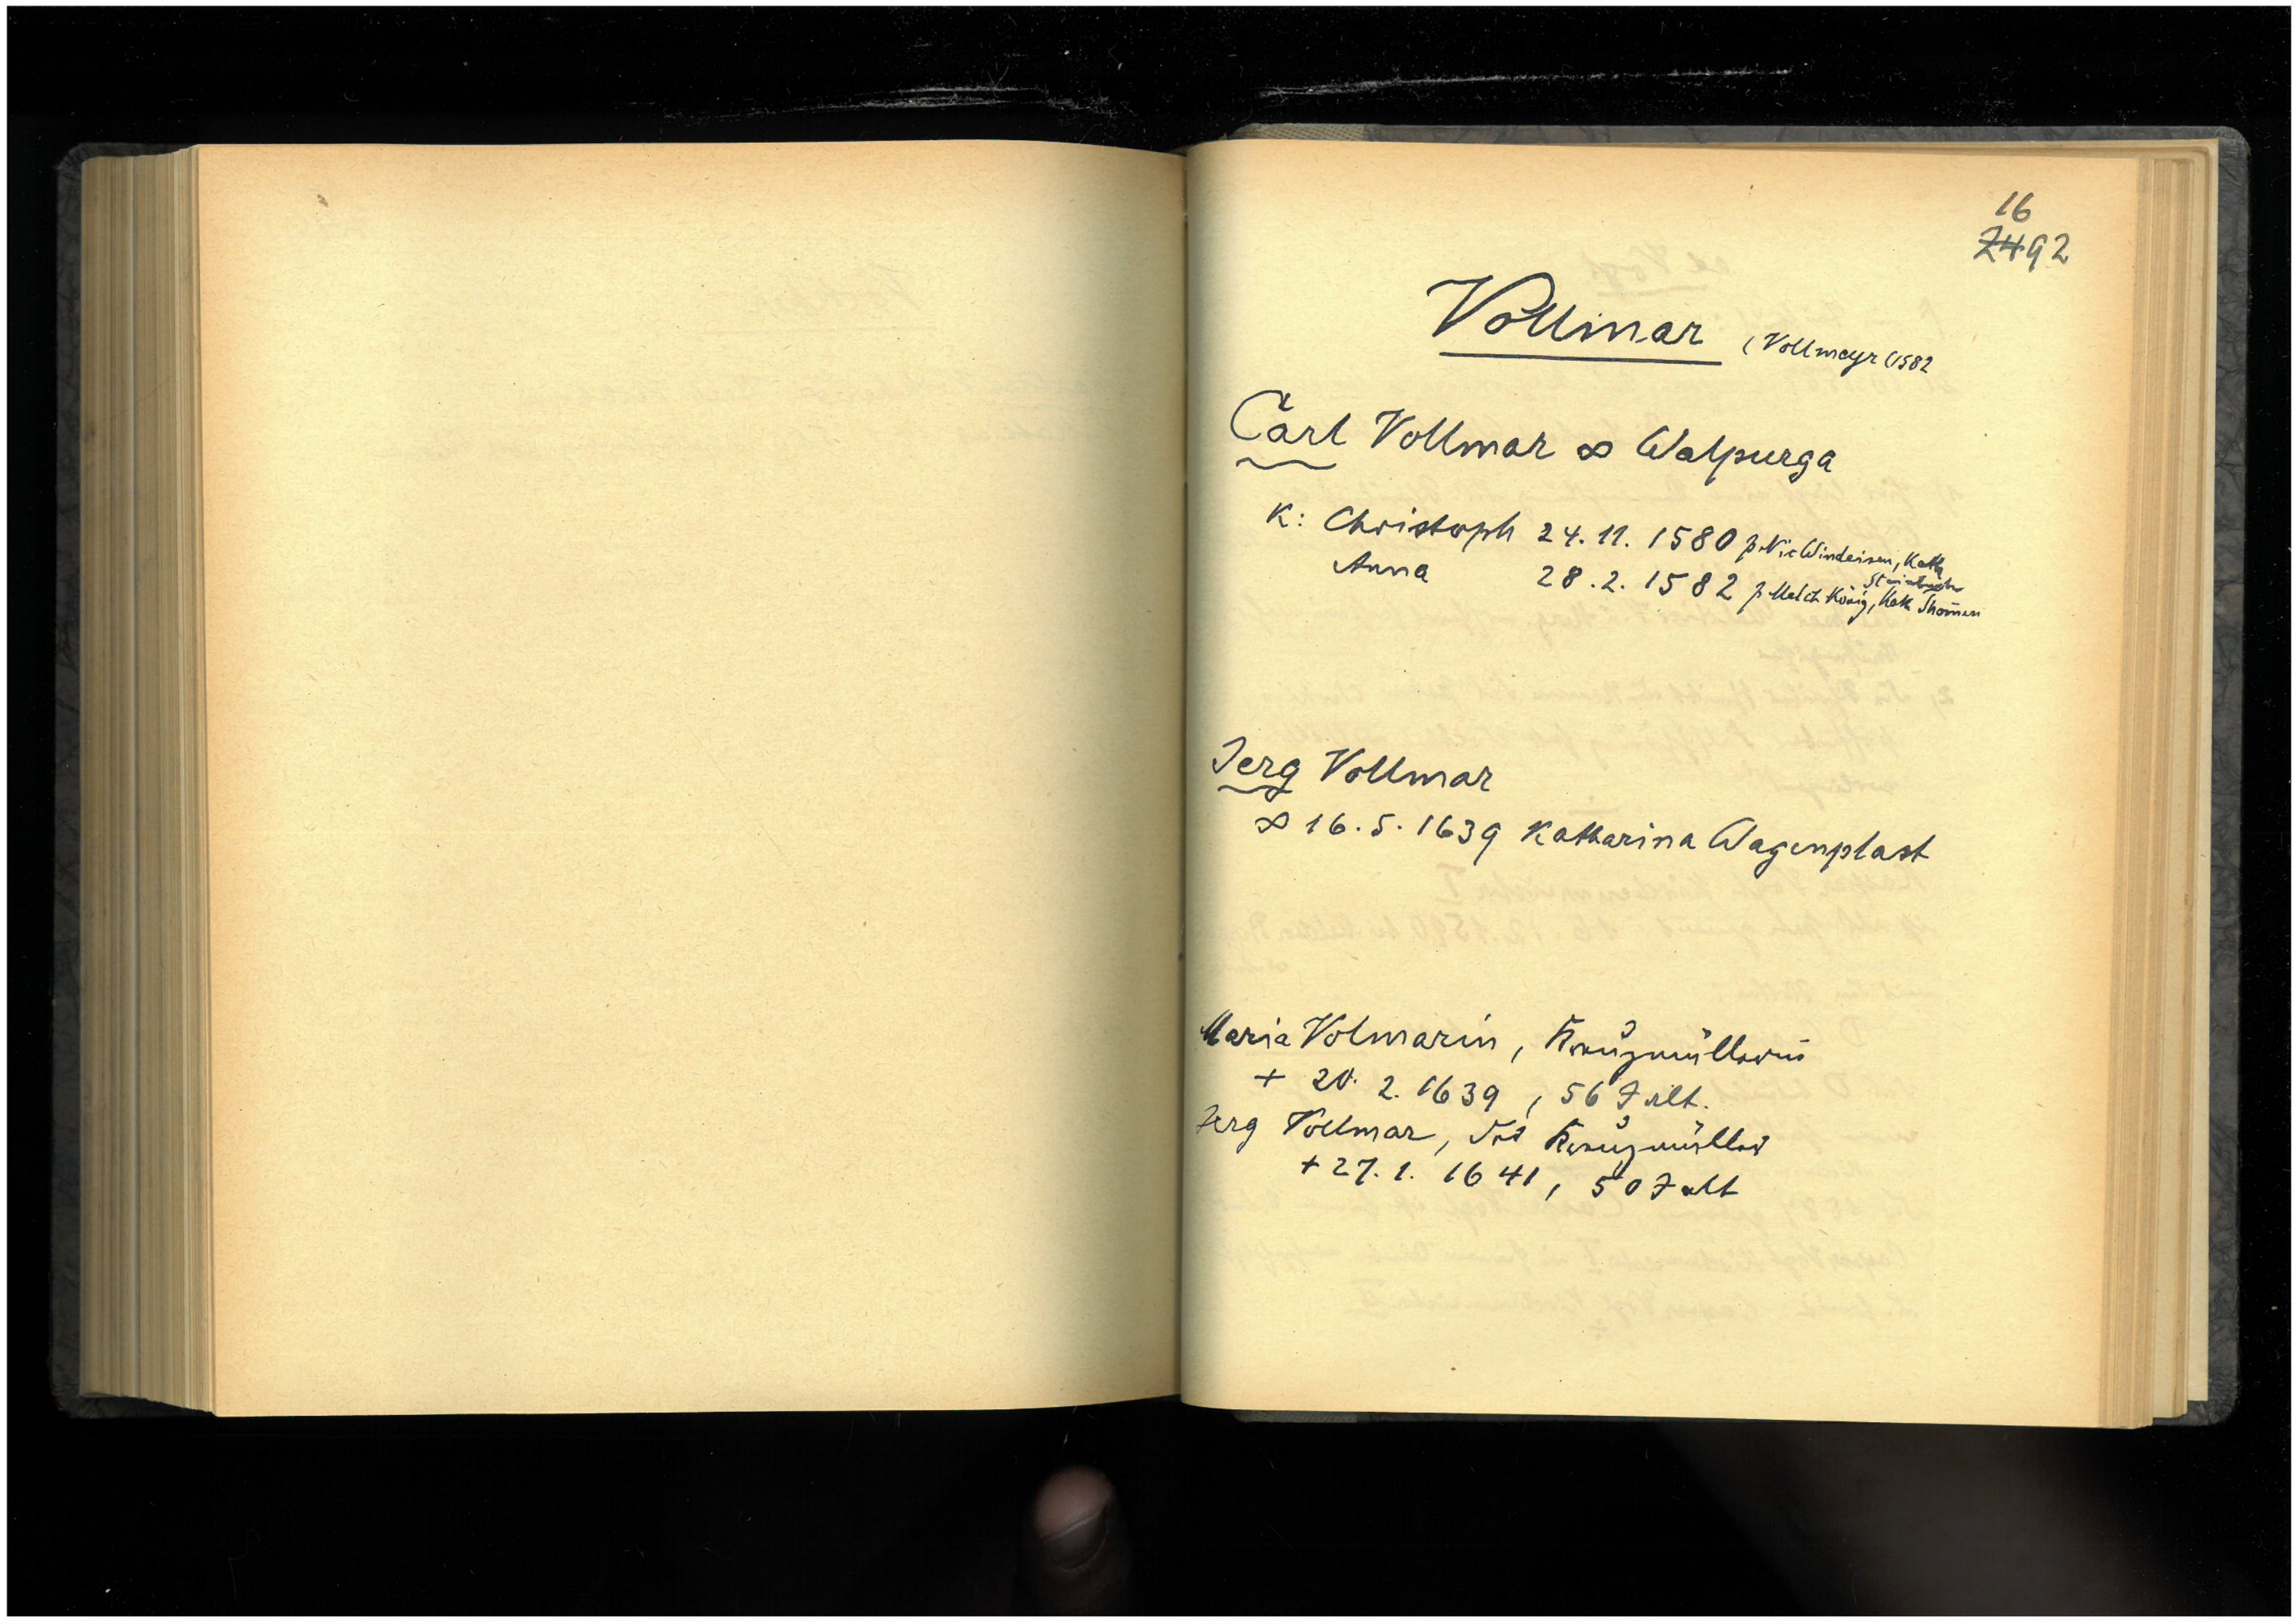 16
74 92
Vollmar (Vollmeyr (1582
Carl Vollmar ∞ Walpurga
K: Christoph 24.11.1580 p. Nic Windeisen, Kath
Anna 28.2.1582 p. Melch König, Kath Thomen
Jerg Vollmar
∞ 16.5.1639 Katharina Wagenplast
Maria Volmarin, Kreuzmüllerin
+ 20. 2. 1639, 56 J alt.
Jerg Vollmar, der Kreuzmüller
+ 27.1. 1641, 50 J alt